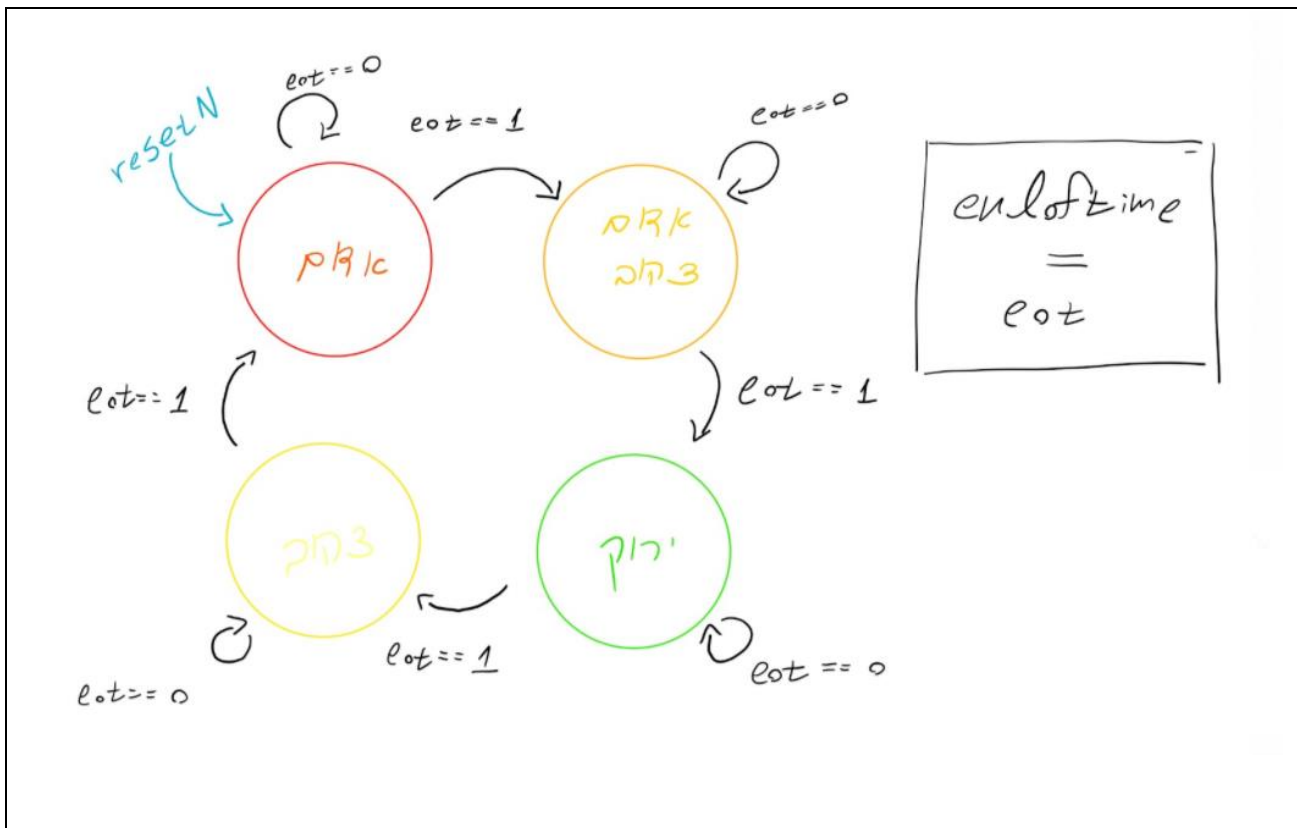 eot == 0
eot == 0
resetN
eot == 1
אדום
אדום
צהוב
endoftime
=
eot
eot == 1
eot == 1
צהוב
ירוק
eot == 1
eot == 0
eot == 0